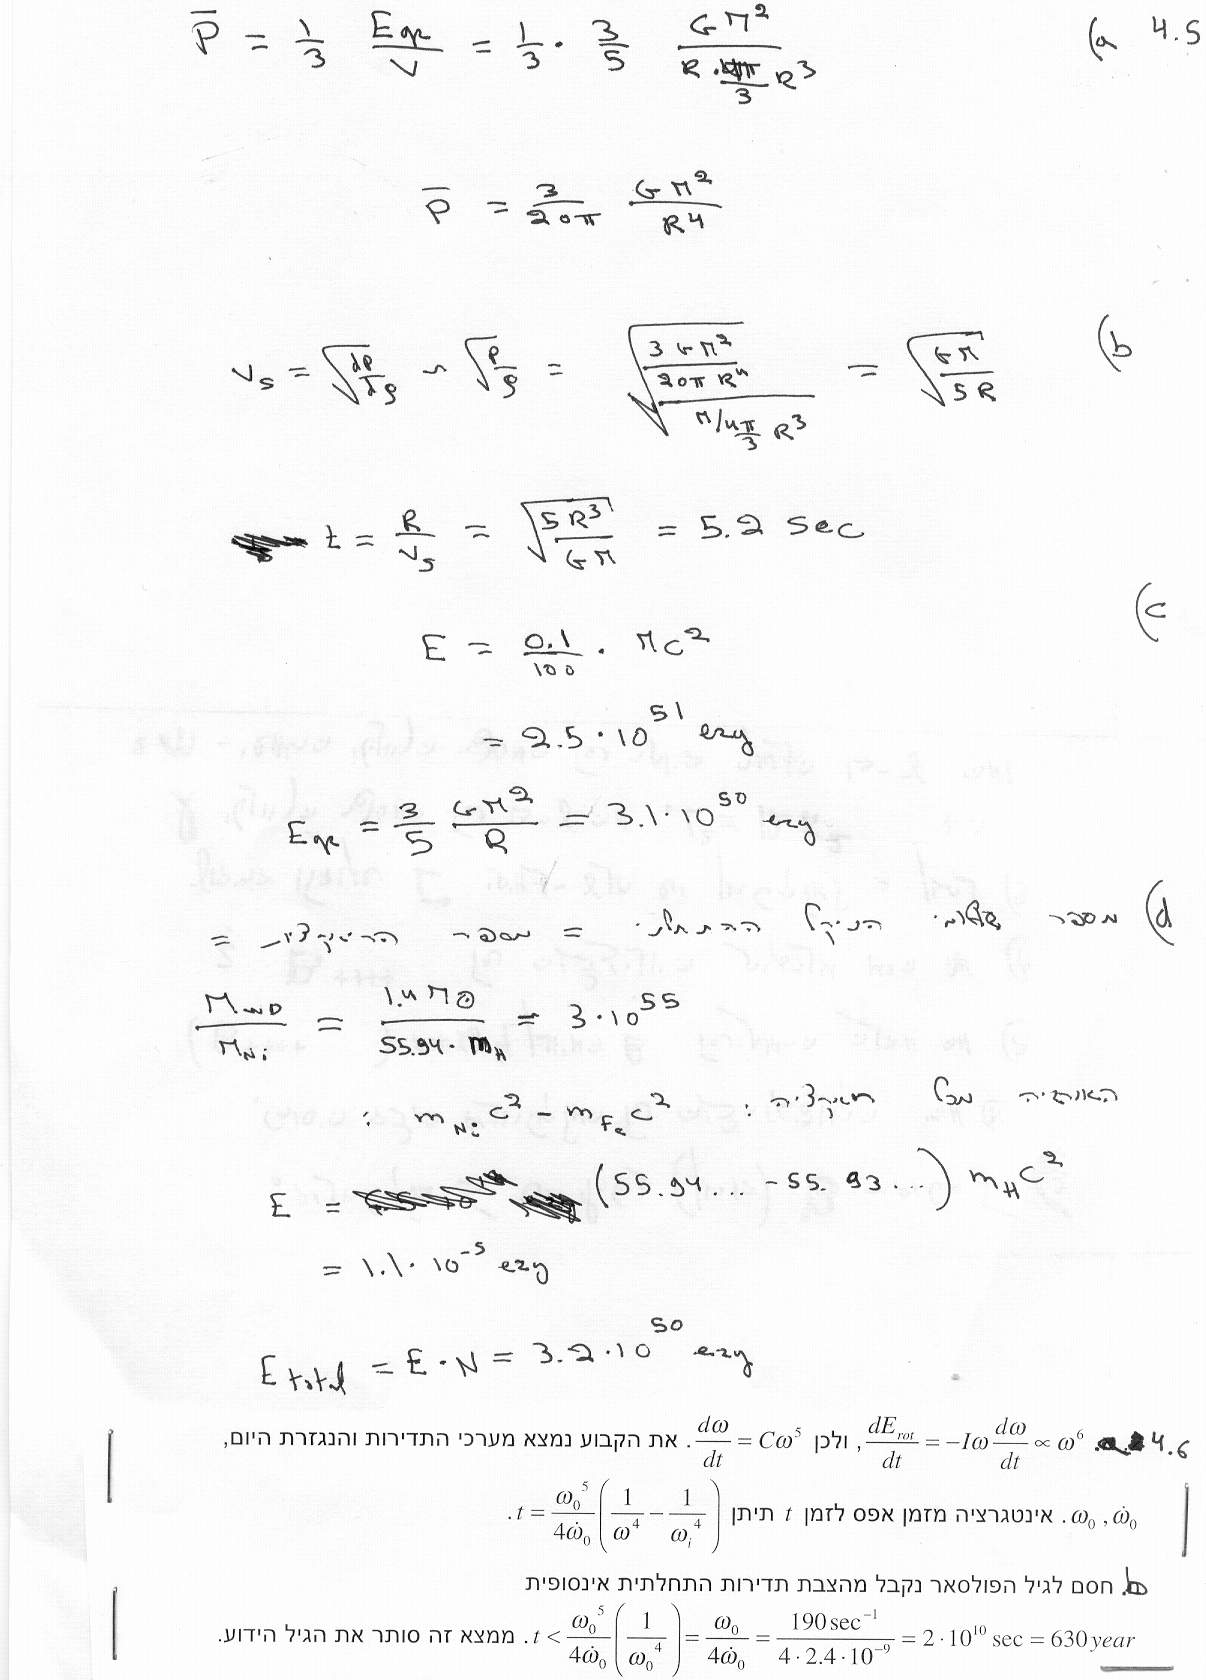 4.5 a) P̄ = 1/3 E_gr/V = 1/3 · 3/5 GM²/(R · 4π/3 R³)
P̄ = 3/20π GM²/R⁴
b) v_s = √(dP/dρ) ~ √(P/ρ) = √((3GM²/20πR⁴)/(M/4π/3 R³)) = √(GM/5R)
t = R/v_s = √(5R³/GM) = 5.2 sec
c)
E = 0.1/100 · Mc²
= 2.5 · 10⁵¹ erg
E_gr = 3/5 GM²/R = 3.1 · 10⁵⁰ erg
d) מספר הניקל ההתחלתי = מספר הריאקציות =
M_WD/M_Ni = 1.4M⊙/(55.94 · m_H) = 3 · 10⁵⁵
האנרגיה מכל ריאקציה : m_Ni c² − m_Fe c² :
E = (55.94... − 55.93...) m_H c²
= 1.1 · 10⁻⁵ erg
E total = E · N = 3.2 · 10⁵⁰ erg
4.6 dE_rot/dt = −Iω dω/dt ∝ ω⁶, ולכן dω/dt = Cω⁵. את הקבוע נמצא מערכי התדירות והנגזרת היום,
ω₀, ω̇₀. אינטגרציה מזמן אפס לזמן t תיתן t = ω₀⁵/4ω̇₀ (1/ω⁴ − 1/ω_i⁴).
b. חסם לגיל הפולסאר נקבל מהצבת תדירות התחלתית אינסופית
t < ω₀⁵/4ω̇₀ (1/ω₀⁴) = ω₀/4ω̇₀ = 190 sec⁻¹/(4 · 2.4 · 10⁻⁹) = 2 · 10¹⁰ sec = 630 year. ממצא זה סותר את הגיל הידוע.